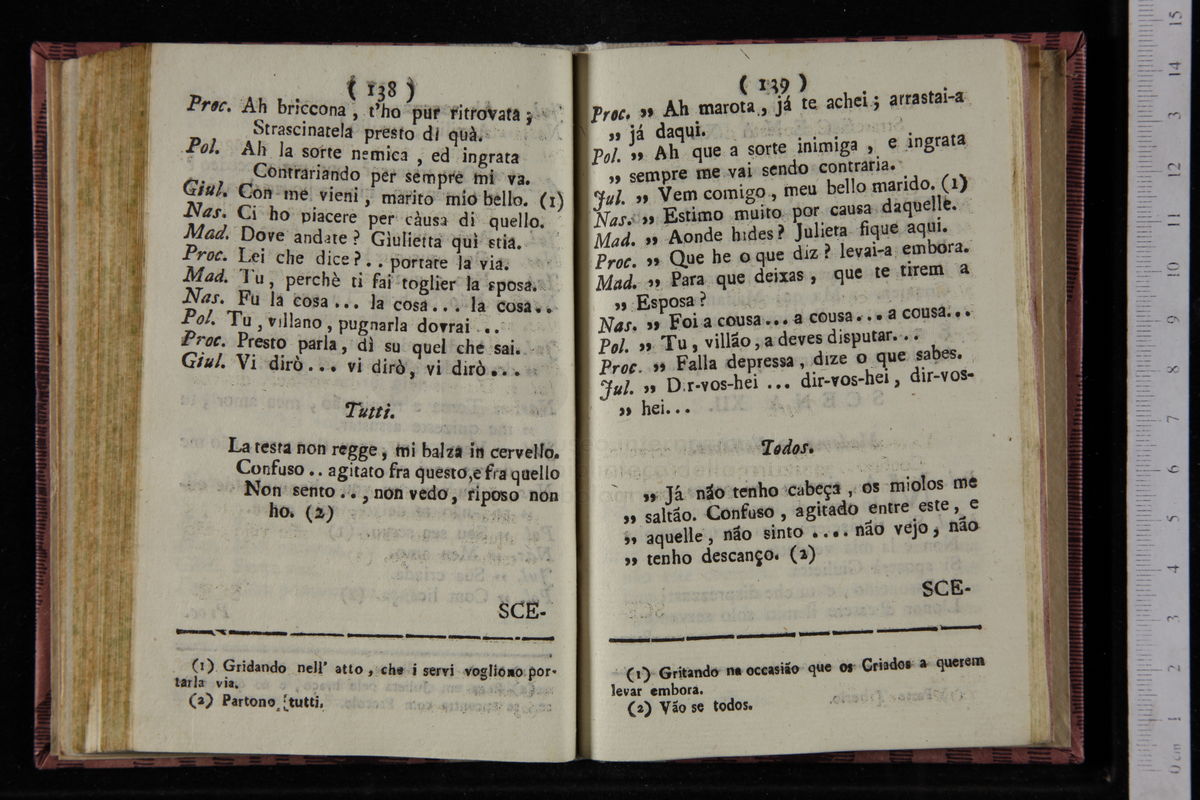 ( 138 )
Proc. Ah briccona, t'ho pur ritrovata;
Strascinatela presto di quà.
Pol. Ah la sorte nemica, ed ingrata
Contrariando per sempre mi va.
Giul. Con me vieni, marito mio bello. (1)
Nas. Ci ho piacere per càusa di quello.
Mad. Dove andate? Giulietta quì stia.
Proc. Lei che dice?.. portate la via.
Mad. Tu, perchè ti fai toglier la sposa.
Nas. Fu la cosa... la cosa... la cosa..
Pol. Tu, villano, pugnarla dovrai...
Proc. Presto parla, dì su quel che sai.
Giul. Vi dirò... vi dirò, vi dirò...
Tutti.
La testa non regge, mi balza in cervello.
Confuso.. agitato fra questo, e fra quello
Non sento.., non vedo, riposo non
ho. (2)
SCE-
(1) Gridando nell' atto, che i servi vogliono por-
tarla via.
(2) Partono tutti.
( 139 )
Proc. „ Ah marota, já te achei; arrastai-a
„ já daqui.
Pol. „ Ah que a sorte inimiga, e ingrata
„ sempre me vai sendo contraria.
Jul. „ Vem comigo, meu bello marido. (1)
Nas. „ Estimo muito por causa daquelle.
Mad. „ Aonde hides? Julieta fique aqui.
Proc. „ Que he o que diz? levai-a embora.
Mad. „ Para que deixas, que te tirem a
„ Esposa?
Nas. „ Foi a cousa... a cousa... a cousa...
Pol. „ Tu, villão, a deves disputar...
Proc. „ Falla depressa, dize o que sabes.
Jul. „ Dir-vos-hei ... dir-vos-hei, dir-vos-
„ hei...
Todos.
„ Já não tenho cabeça, os miolos me
„ saltão. Confuso, agitado entre este, e
„ aquelle, não sinto .... não vejo, não
„ tenho descanço. (2)
SCE-
(1) Gritando na occasião que os Criados a querem
levar embora.
(2) Vão se todos.
0 cm 1 2 3 4 5 6 7 8 9 10 11 12 13 14 15